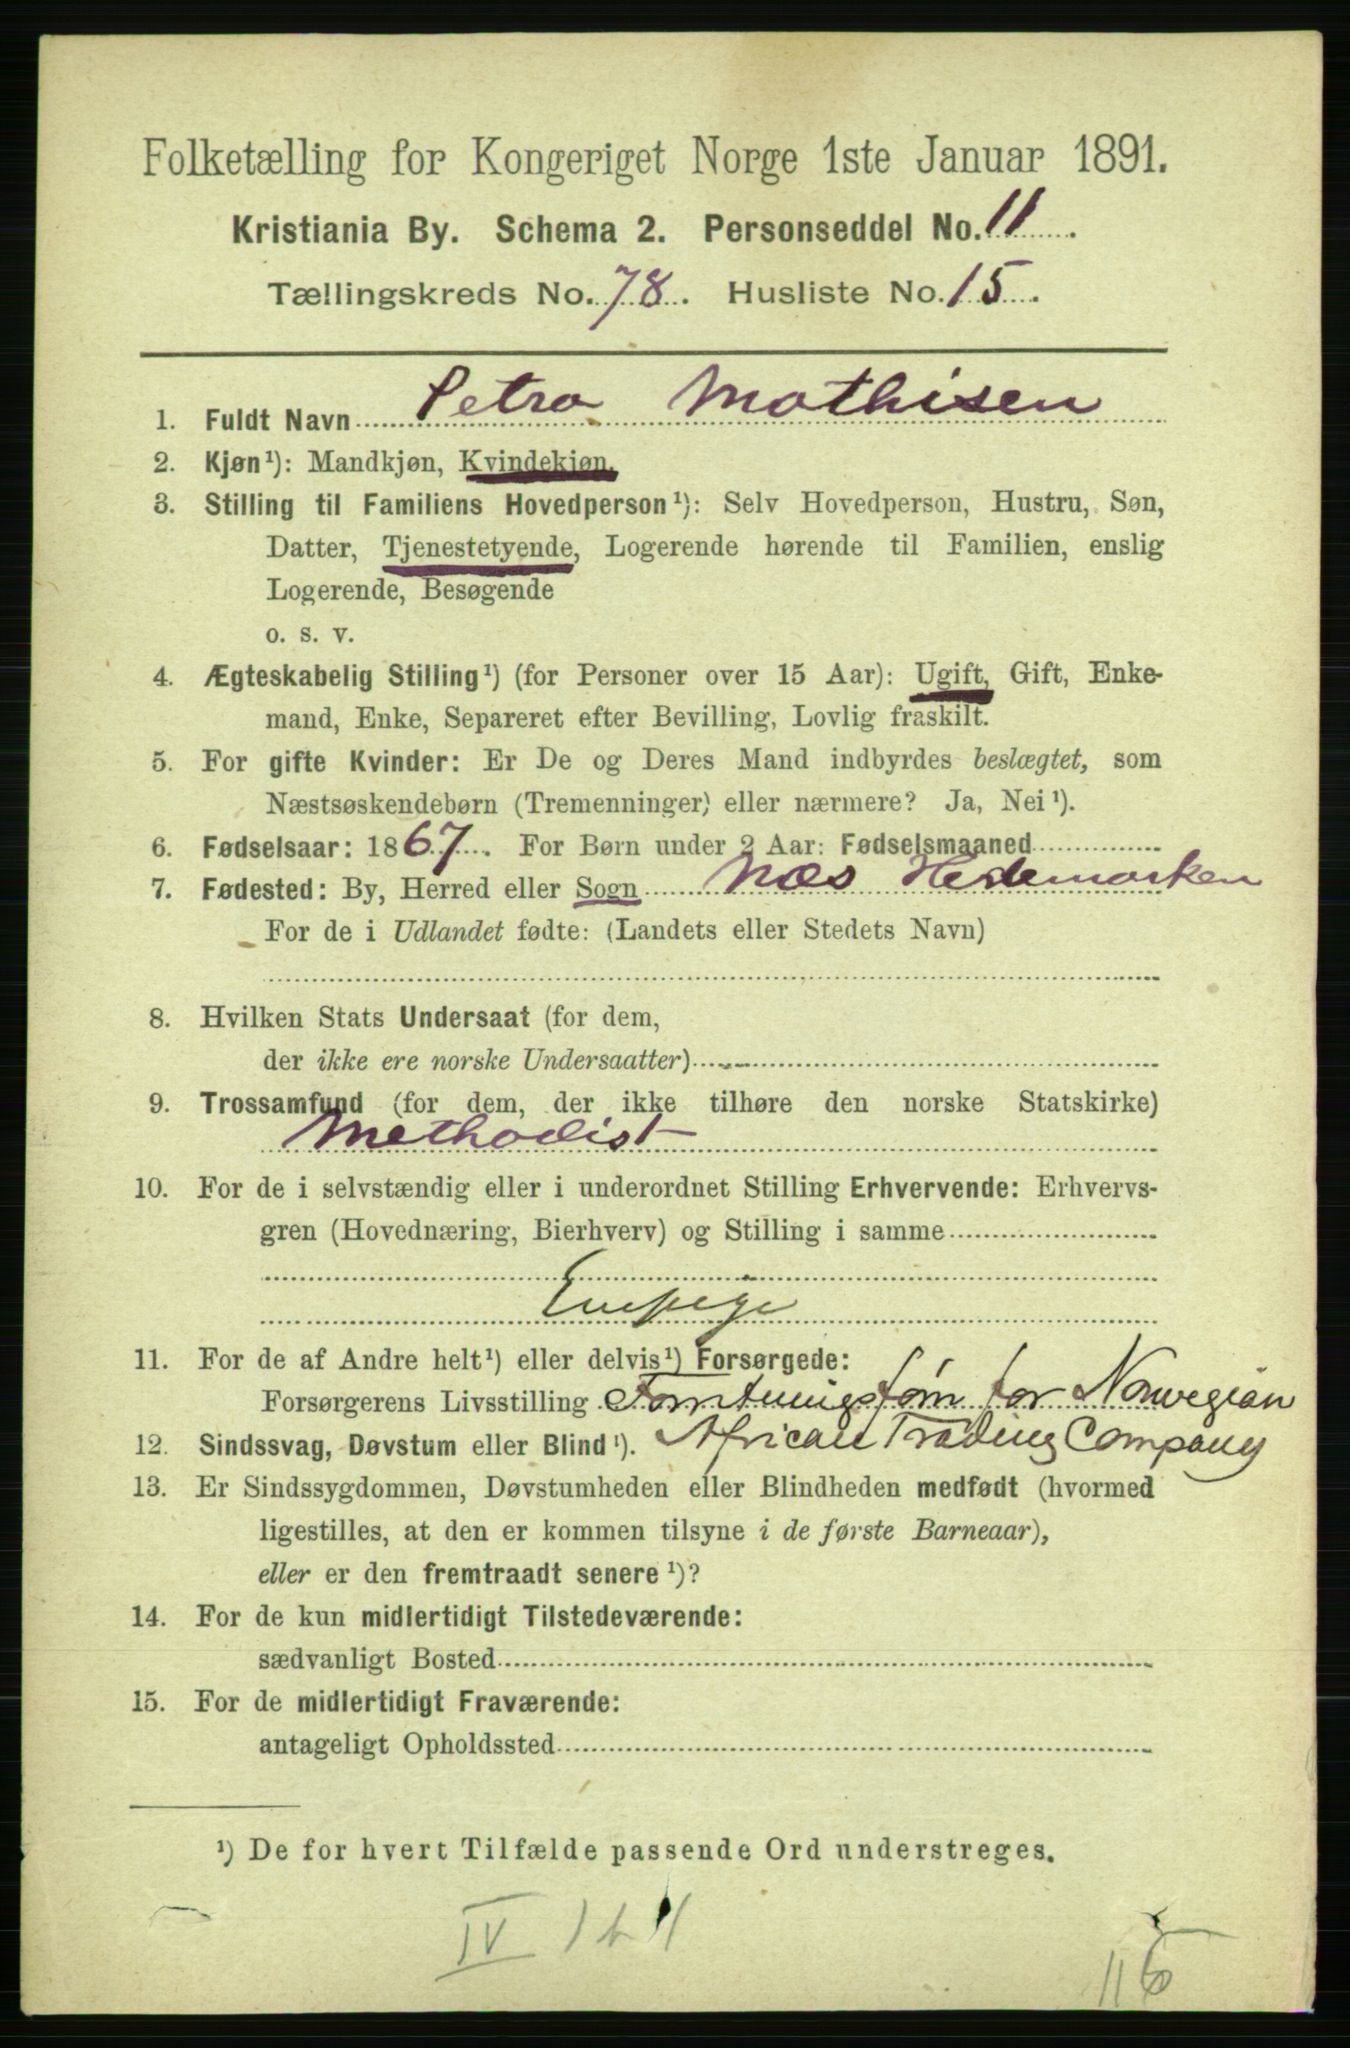 Folketælling for Kongeriget Norge 1ste Januar 1891.
Kristiania By. Schema 2. Personseddel No. 11.
Tællingskreds No. 78. Husliste No. 15.
1. Fuldt Navn Petra Mathisen
2. Kjøn¹): Mandkjøn, Kvindekjøn.
3. Stilling til Familiens Hovedperson¹): Selv Hovedperson, Hustru, Søn,
Datter, Tjenestetyende, Logerende hørende til Familien, enslig
Logerende, Besøgende
o. s. v.
4. Ægteskabelig Stilling¹) (for Personer over 15 Aar): Ugift, Gift, Enke-
mand, Enke, Separeret efter Bevilling, Lovlig fraskilt.
5. For gifte Kvinder: Er De og Deres Mand indbyrdes beslægtet, som
Næstsøskendebørn (Tremenninger) eller nærmere? Ja, Nei¹).
6. Fødselsaar: 1867. For Børn under 2 Aar: Fødselsmaaned
7. Fødested: By, Herred eller Sogn Næs Hedemarken
For de i Udlandet fødte: (Landets eller Stedets Navn)
8. Hvilken Stats Undersaat (for dem,
der ikke ere norske Undersaatter)
9. Trossamfund (for dem, der ikke tilhøre den norske Statskirke)
Methodist
10. For de i selvstændig eller i underordnet Stilling Erhvervende: Erhvervs-
gren (Hovednæring, Bierhverv) og Stilling i samme
Enepige
11. For de af Andre helt¹) eller delvis¹) Forsørgede:
Forsørgerens Livsstilling for Norwegian
African Trading Company
12. Sindssvag, Døvstum eller Blind¹).
13. Er Sindssygdommen, Døvstumheden eller Blindheden medfødt (hvormed
ligestilles, at den er kommen tilsyne i de første Barneaar),
eller er den fremtraadt senere¹)?
14. For de kun midlertidigt Tilstedeværende:
sædvanligt Bosted
15. For de midlertidigt Fraværende:
antageligt Opholdssted
¹) De for hvert Tilfælde passende Ord understreges.
IV 121
116